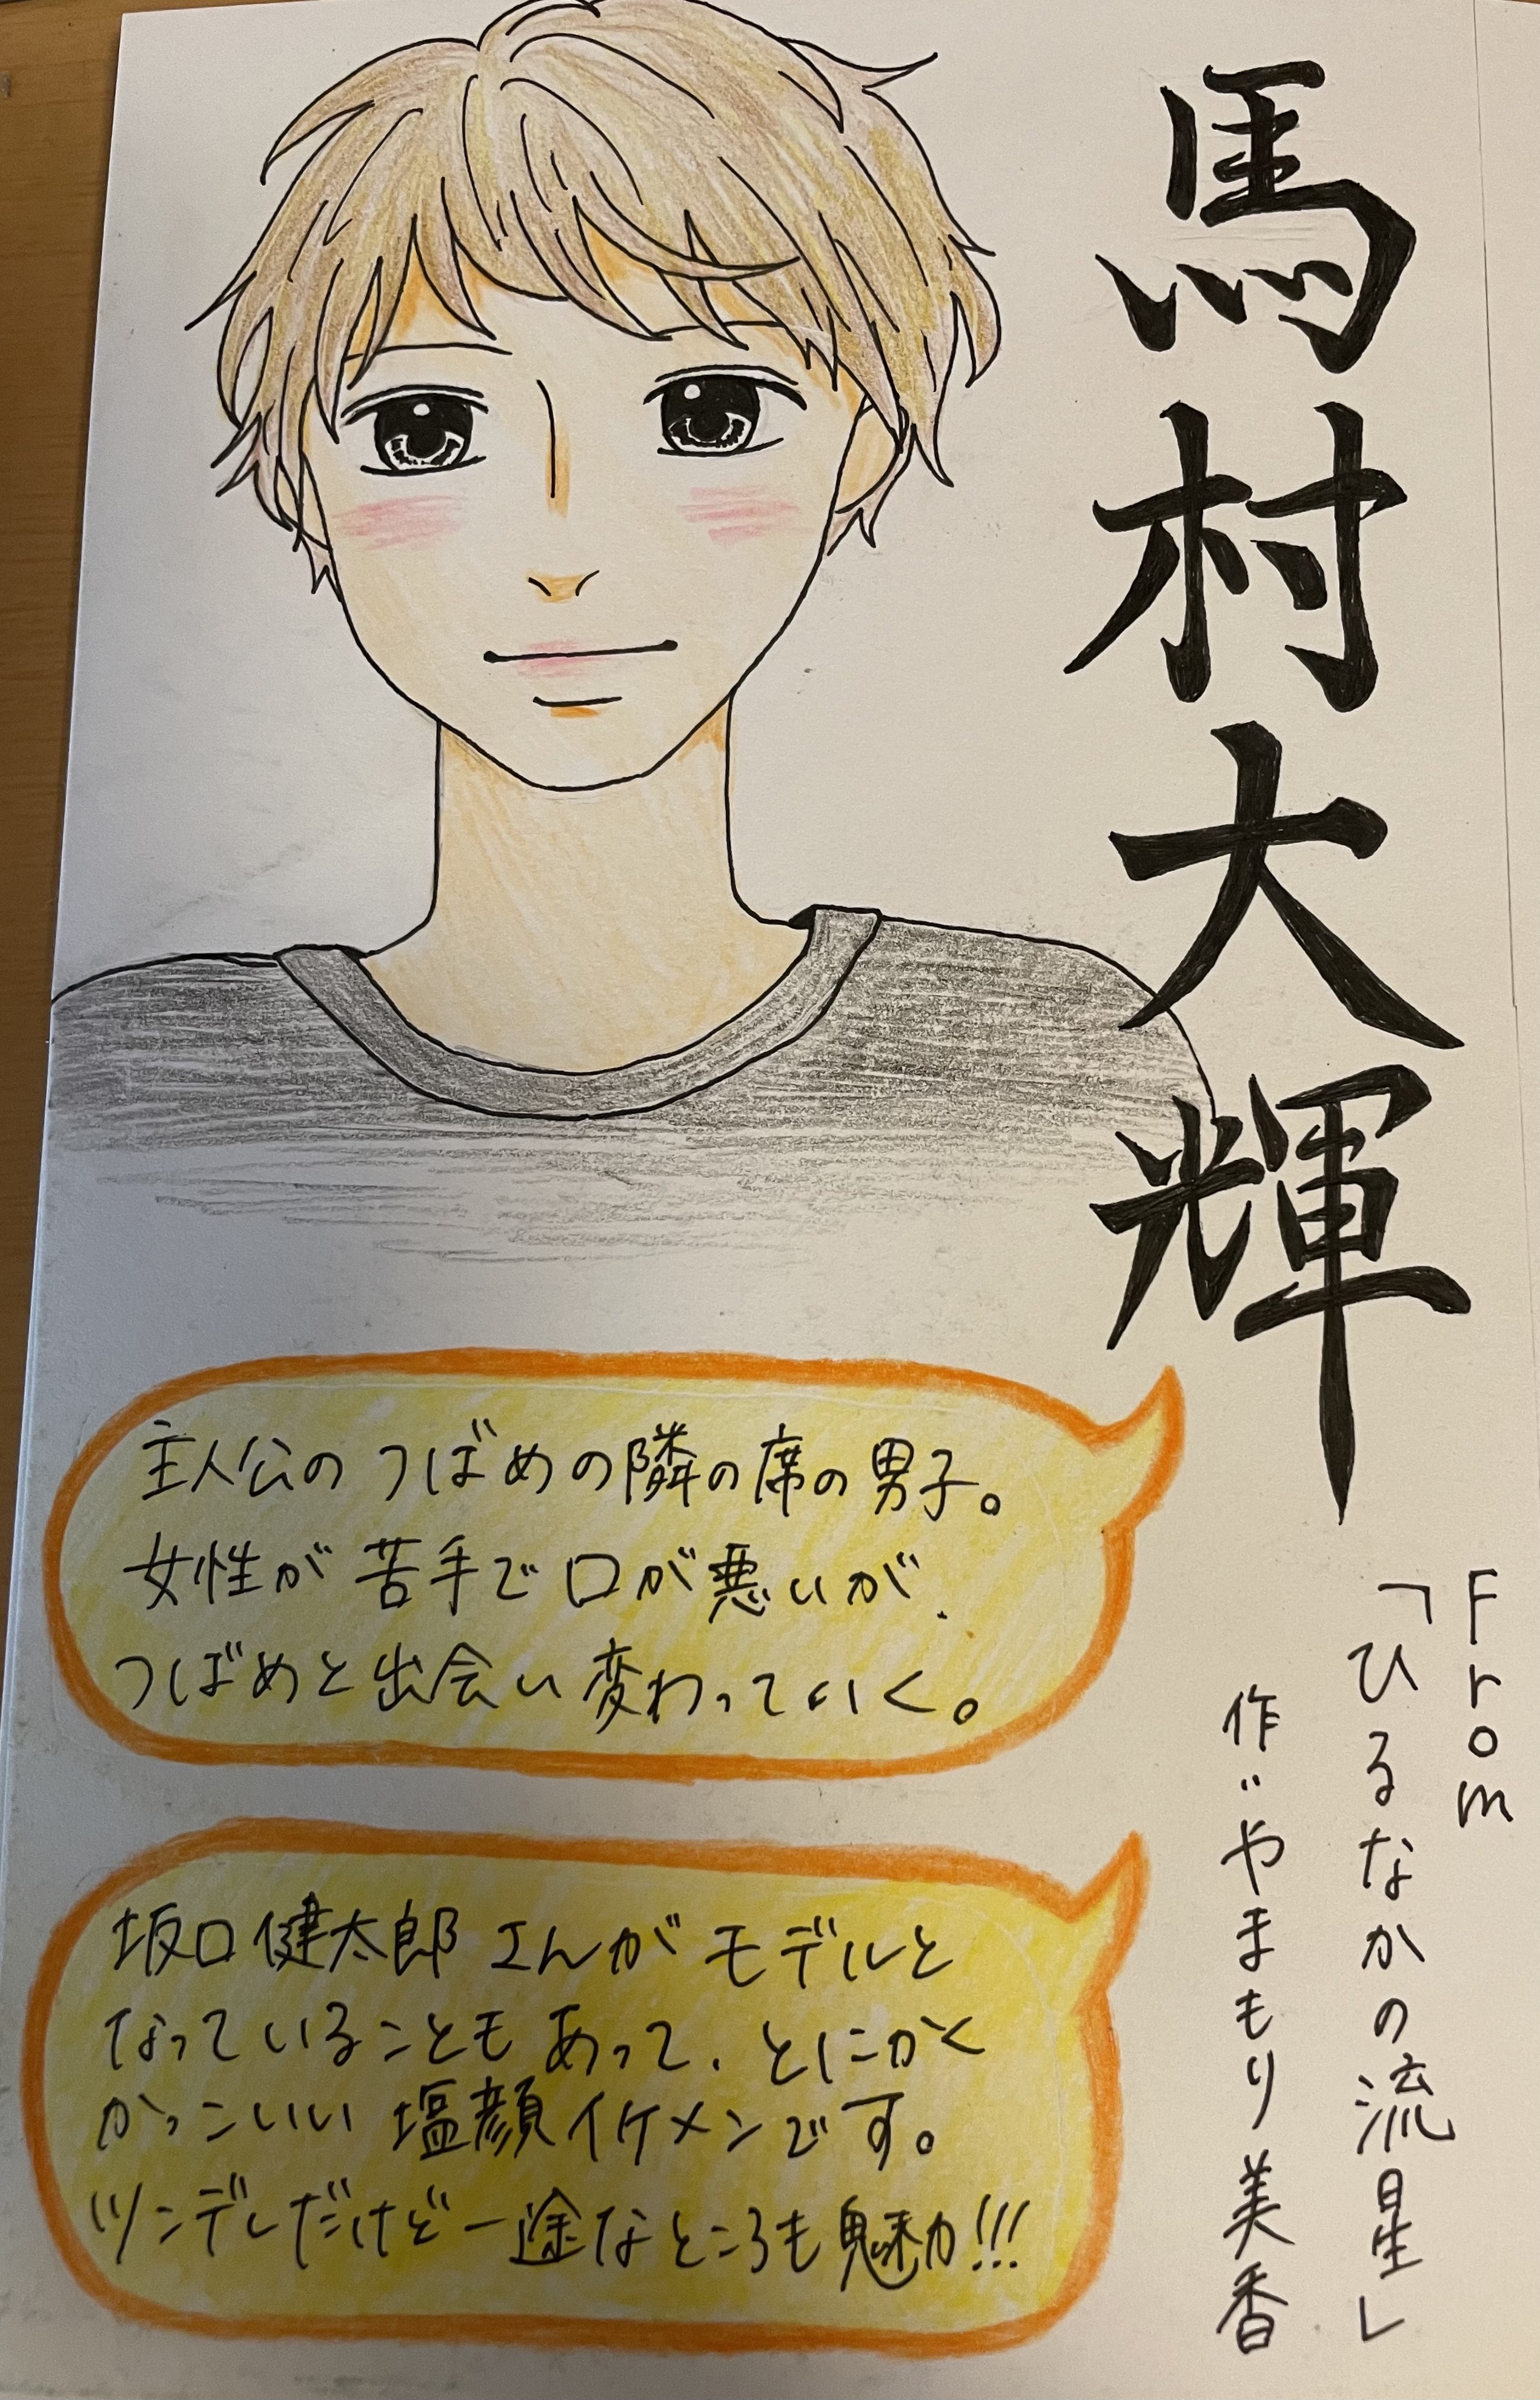 馬村大輝
From
「ひるなかの流星」
作:やまもり美香
主人公のつばめの隣の席の男子。
女性が苦手で口が悪いが、
つばめと出会い変わっていく。
坂口健太郎さんがモデルと
なっていることもあって、とにかく
かっこいい塩顔イケメンです。
ツンデレだけど一途なところも魅力!!!